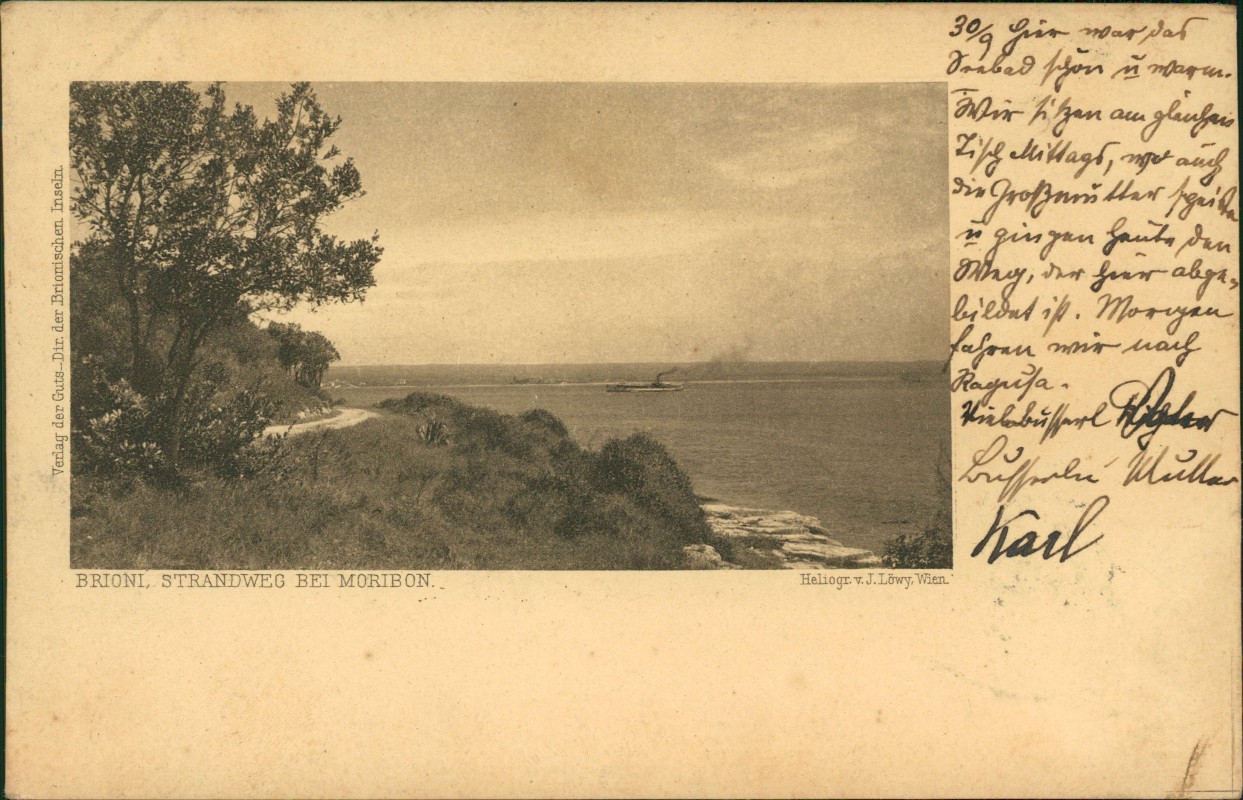 30/9 Hier war das
Seebad schön u warm.
Wir sitzen am gleichen
Tisch Mittags, wo auch
die Großmutter speiste
u gingen heute den
Weg, der hier abge-
bildet ist. Morgen
fahren wir nach
Ragusa.
Vielebusserl
Busserln Mutter
Karl
Verlag der Guts-Dir. der Brionischen Inseln.
BRIONI, STRANDWEG BEI MORIBON.
Heliogr. v. J. Löwy, Wien.